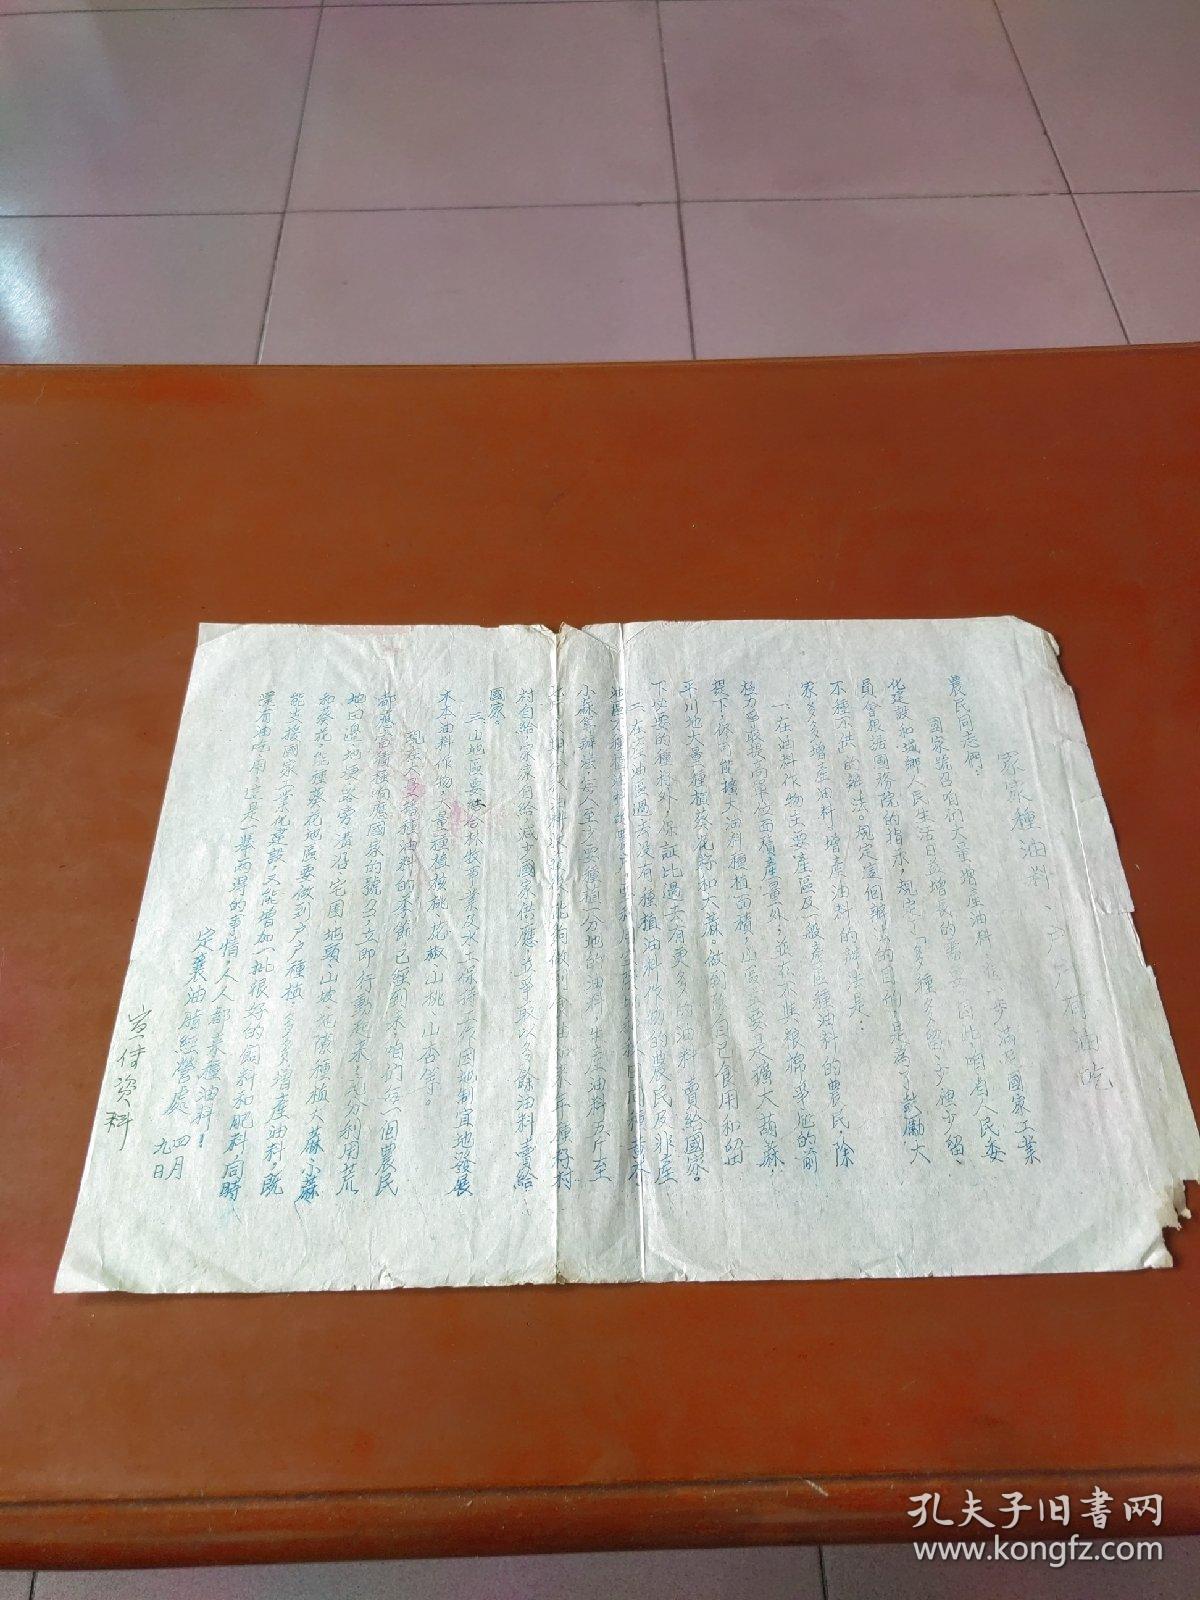 家家種油料、户户有油吃
農民同志們:
國家號召咱們大量增産油料、進一步滿足國家工業
化建設和城鄉人民生活日益增長的需　因此咱省人民委
員會根据國務院的指示，規定了「多種多留、少種少留、
不種不供的辦法。規定這個辦法的目的，是為了鼓勵大
家多多增産油料，增産油料的辦法是:
一、在油料作物主要産區及一般産區種油料的農民，除
極力爭取提高單位面積産量外，並在不與粮棉爭地的前
提下，你可能擴大油料種植面積，山區主要是擴大葫蔴，
平川地大量種植葵花籽和大蔴。做到除自己食用和留
下必要的種籽外，保証比過去有更多的油料賣給國家。
二、在産油區過去没有種植油料作物的農民及非産
油區不種油料的
小蔴等辦法，每人至少要種植一分地的油料，生産油料五斤至
村自給家家自給，减少國家供應，並爭取以多餘油料賣給
國家。
三、山地區要結合林牧事業及水土保持工作因地制宜地發展
木本油料作物，大量種植核桃、花椒、山桃、山杏等。
現在各種油料的季節已經到來，咱們每一個農民
都應當積極响應國家的號召，立即行動起來，充分利用荒
地田邊地埂、路旁溝沿、宅園地頭、山坡花隙種植大蔴、小蔴
和葵花，能種葵花地區要做到户户種植，多多增産油料，既
能支援國家工業化建設又能增加一批很好的飼料和肥料，同時
還有油吃用，這是一舉兩得的事情，人人都來種油料!
定襄油脂經營處
四月
九日
宣传资料
孔夫子旧书网
www.kongfz.com